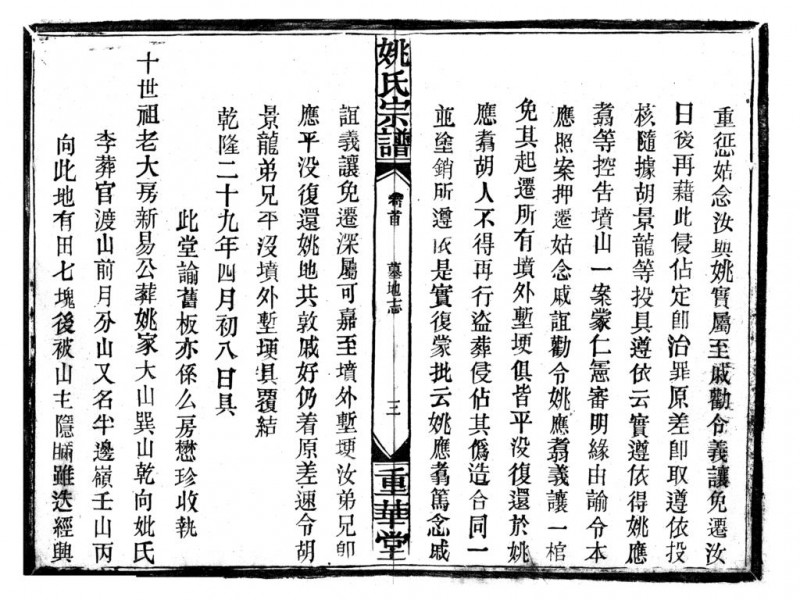 重惩姑念汝與姚實屬至戚勸令義讓免遷汝
日後再藉此侵佔定卽治罪原差卽取遵依投
核隨據胡景龍等投具遵依云實遵依得姚應
翥等控告墳山一案蒙仁憲審明緣由諭令本
應照案押遷姑念戚誼勸令姚應翥義讓一棺
免其起遷所有墳外塹埂俱皆平没復還於姚
應翥胡人不得再行盜葬侵佔其僞造合同一
並塗銷所遵依是實復蒙批云姚應翥篤念戚
姚氏宗譜
卷首
墓地志
三
重華堂
誼義讓免遷深屬可嘉至墳外塹埂汝弟兄卽
應平没復還姚地共敦戚好仍着原差速令胡
景龍弟兄平沒墳外塹埂具覆結
乾隆二十九年四月初八日具
此堂諭舊板亦係么房懋珍收執
十世祖老大房新易公葬姚家大山巽山乾向妣氏
李葬官渡山前月分山又名半邊嶺壬山丙
向此地有田七塊後被山主隱瞞雖迭經興